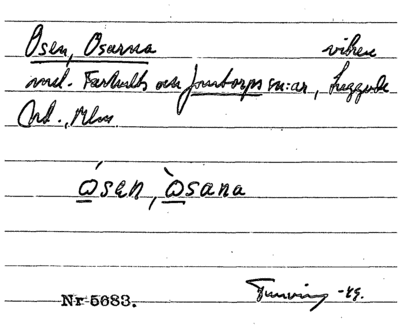 Osen, Osarna viken
mel. Farhults och Jonstorps sn:ar, Luggude
hd., Mlm.
ωsen, ωsana
Nr 5683. -49.